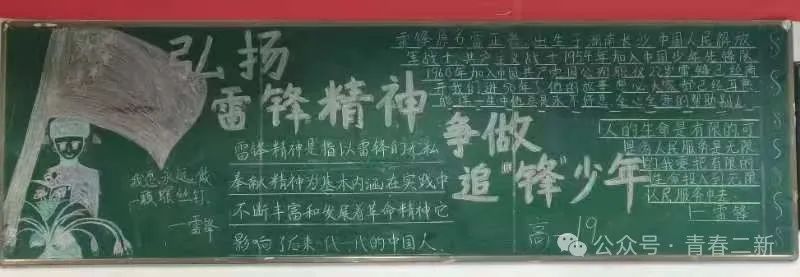 弘扬
雷锋精神
争做
追"锋"少年
雷锋原名雷正兴,出生于湖南长沙中国人民解放
军战士,共产主义战士1954年加入中国少年先锋队
1960年加入中国共产党
人的生命是有限的可
是为人民服务是无限
的我要把有限的
生命投入到无限
人民服务中去
—雷锋
雷锋精神是指以雷锋的无私
奉献精神为基本内涵在实践中
不断丰富和发展着革命精神它
影响了后来一代一代的中国人.
我愿永远做
一颗螺丝钉.
—雷锋
高一19
公众号·青春二新